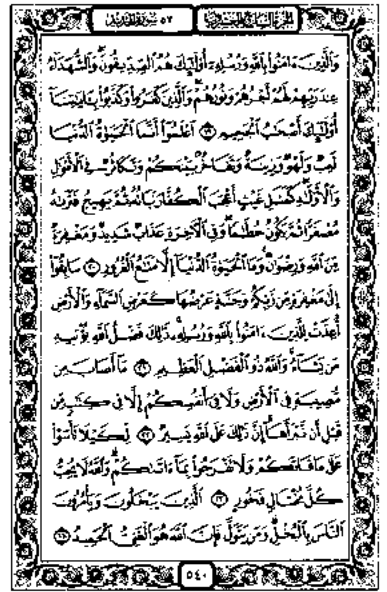 الجزء السابع والعشرون
٥٧ سورة الحديد
وَالَّذِينَ ءَامَنُوا بِاللَّهِ وَرُسُلِهِ أُولَٰئِكَ هُمُ الصِّدِّيقُونَ وَالشُّهَدَاءُ
عِندَ رَبِّهِمْ لَهُمْ أَجْرُهُمْ وَنُورُهُمْ وَالَّذِينَ كَفَرُوا وَكَذَّبُوا بِـَٔايَٰتِنَا
أُولَٰئِكَ أَصْحَٰبُ الْجَحِيمِ ١٩ اعْلَمُوا أَنَّمَا الْحَيَوٰةُ الدُّنْيَا
لَعِبٌ وَلَهْوٌ وَزِينَةٌ وَتَفَاخُرٌ بَيْنَكُمْ وَتَكَاثُرٌ فِي الْأَمْوَٰلِ
وَالْأَوْلَٰدِ كَمَثَلِ غَيْثٍ أَعْجَبَ الْكُفَّارَ نَبَاتُهُ ثُمَّ يَهِيجُ فَتَرَىٰهُ
مُصْفَرًّا ثُمَّ يَكُونُ حُطَٰمًا وَفِي الْآخِرَةِ عَذَابٌ شَدِيدٌ وَمَغْفِرَةٌ
مِّنَ اللَّهِ وَرِضْوَٰنٌ وَمَا الْحَيَوٰةُ الدُّنْيَا إِلَّا مَتَٰعُ الْغُرُورِ ٢٠ سَابِقُوا
إِلَىٰ مَغْفِرَةٍ مِّن رَّبِّكُمْ وَجَنَّةٍ عَرْضُهَا كَعَرْضِ السَّمَاءِ وَالْأَرْضِ
أُعِدَّتْ لِلَّذِينَ ءَامَنُوا بِاللَّهِ وَرُسُلِهِ ذَٰلِكَ فَضْلُ اللَّهِ يُؤْتِيهِ
مَن يَشَاءُ وَاللَّهُ ذُو الْفَضْلِ الْعَظِيمِ ٢١ مَا أَصَابَ مِن
مُّصِيبَةٍ فِي الْأَرْضِ وَلَا فِي أَنفُسِكُمْ إِلَّا فِي كِتَٰبٍ مِّن
قَبْلِ أَن نَّبْرَأَهَا إِنَّ ذَٰلِكَ عَلَى اللَّهِ يَسِيرٌ ٢٢ لِّكَيْلَا تَأْسَوْا
عَلَىٰ مَا فَاتَكُمْ وَلَا تَفْرَحُوا بِمَا ءَاتَىٰكُمْ وَاللَّهُ لَا يُحِبُّ
كُلَّ مُخْتَالٍ فَخُورٍ ٢٣ الَّذِينَ يَبْخَلُونَ وَيَأْمُرُونَ
النَّاسَ بِالْبُخْلِ وَمَن يَتَوَلَّ فَإِنَّ اللَّهَ هُوَ الْغَنِيُّ الْحَمِيدُ ٢٤
٥٤٠